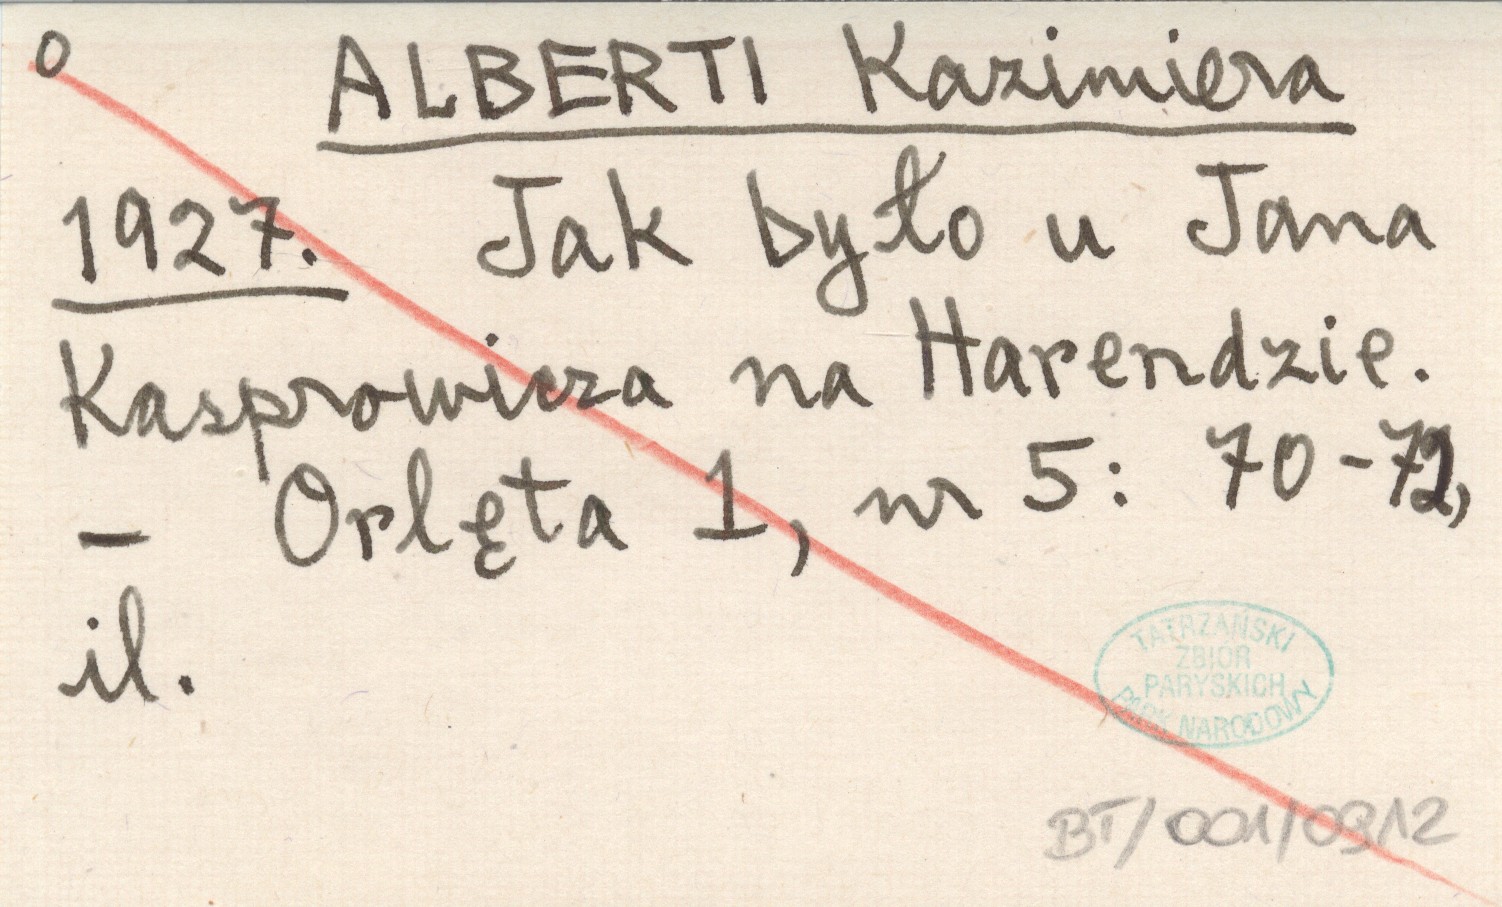 o ALBERTI Kazimiera
1927. Jak było u Jana
Kasprowicza na Harendzie.
– Orlęta 1, nr 5: 70-72,
il.
TATRZAŃSKI
ZBIÓR
PARYSKICH
PARK NARODOWY
BT/001/0912